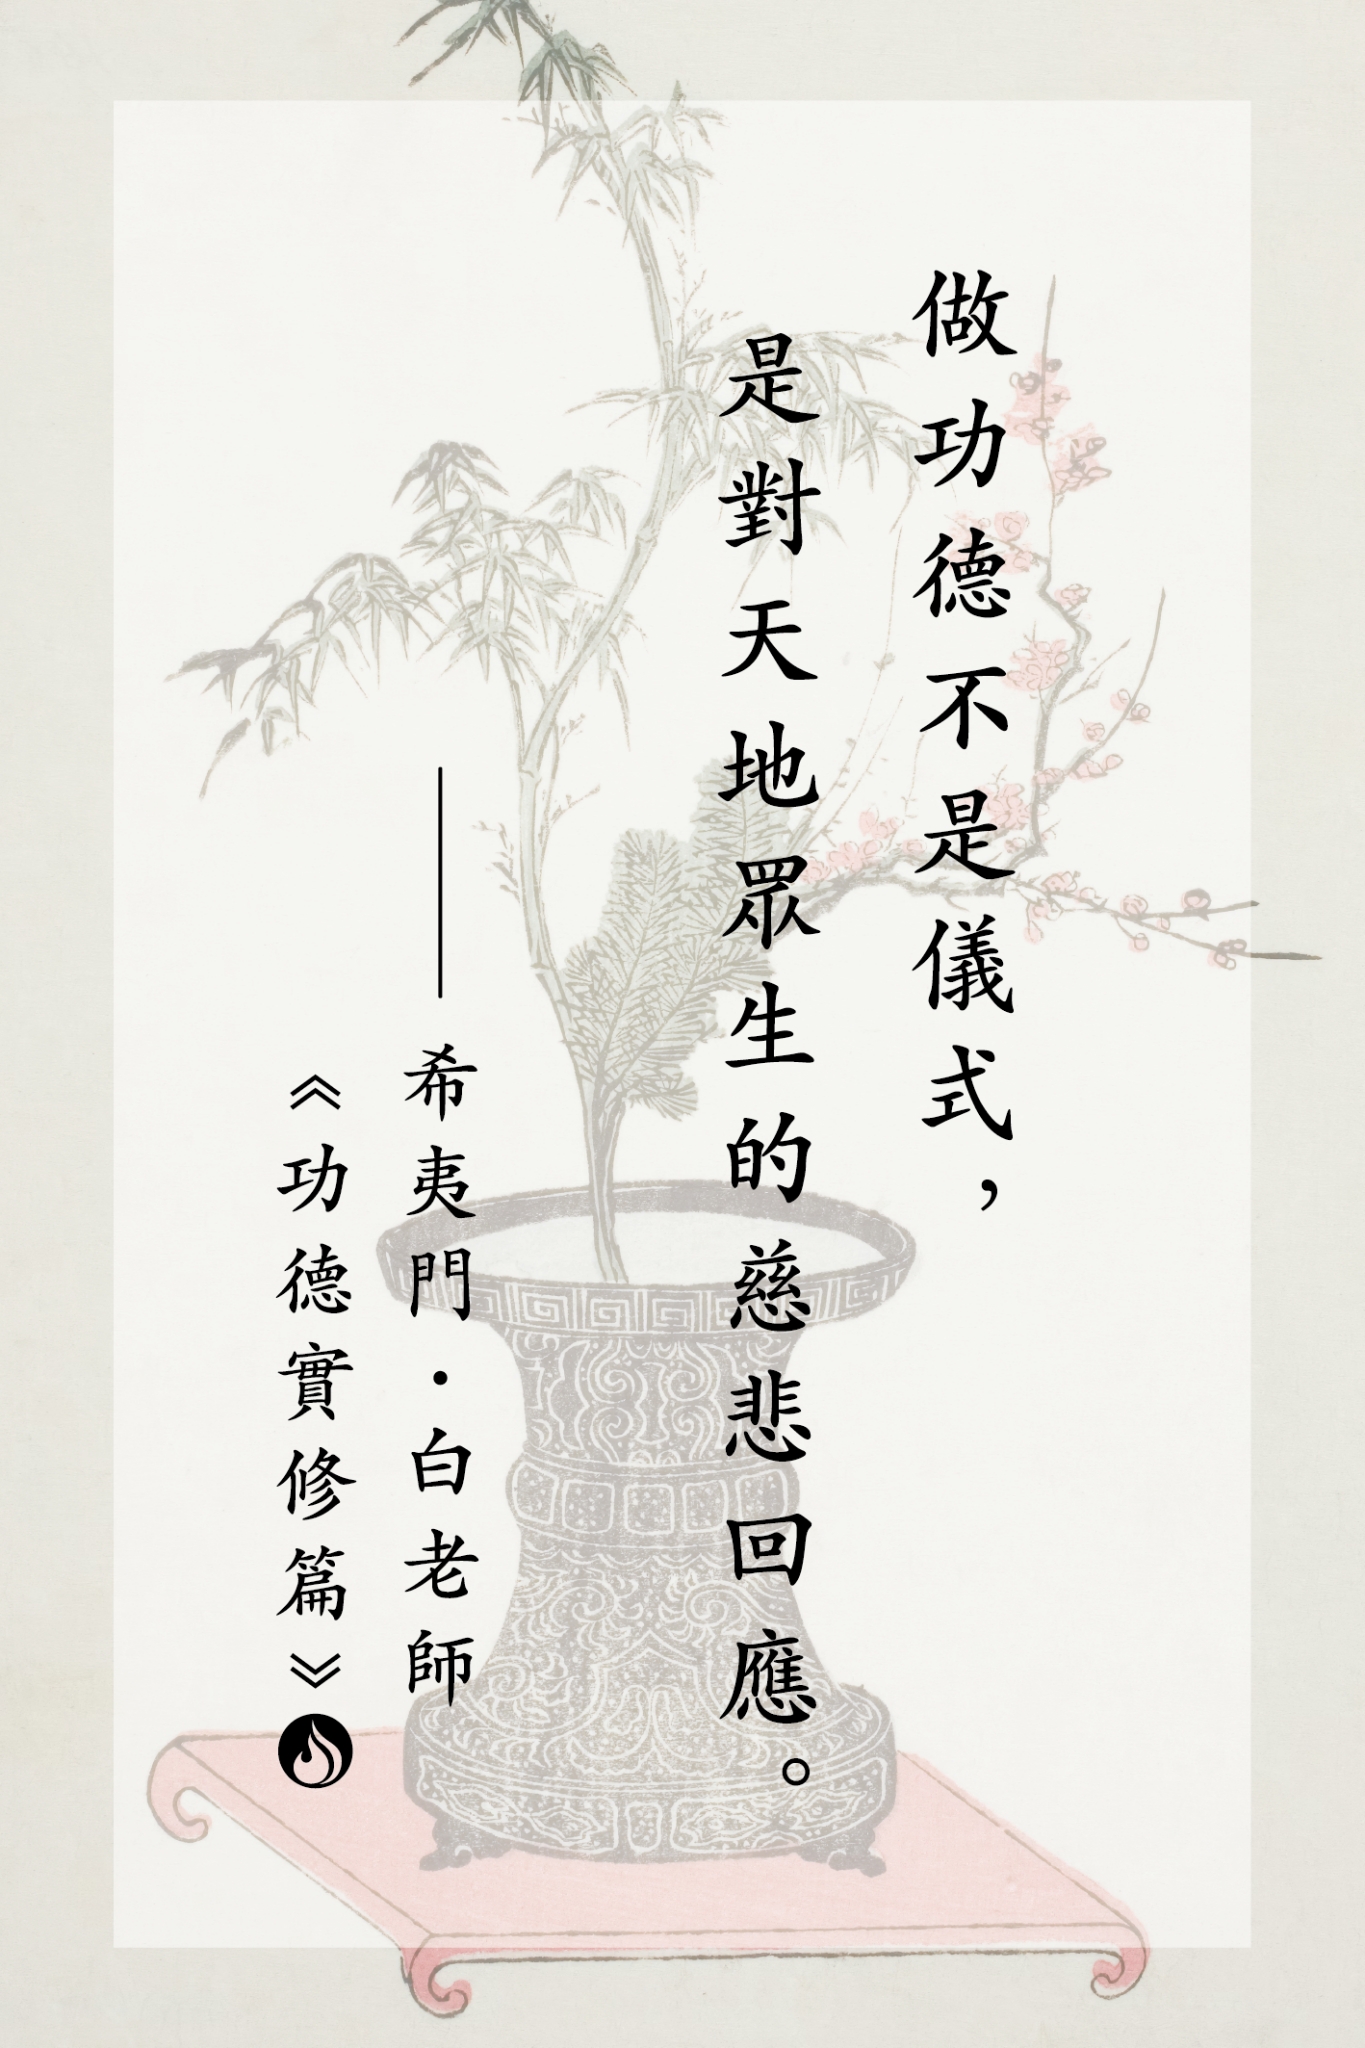 做功德不是儀式，
是對天地眾生的慈悲回應。
——希夷門·白老師
《功德實修篇》